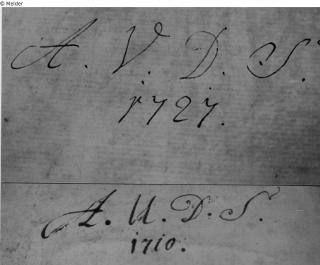 © Melder
A. V. D. S.
1727.
A. U. D. S.
1710.